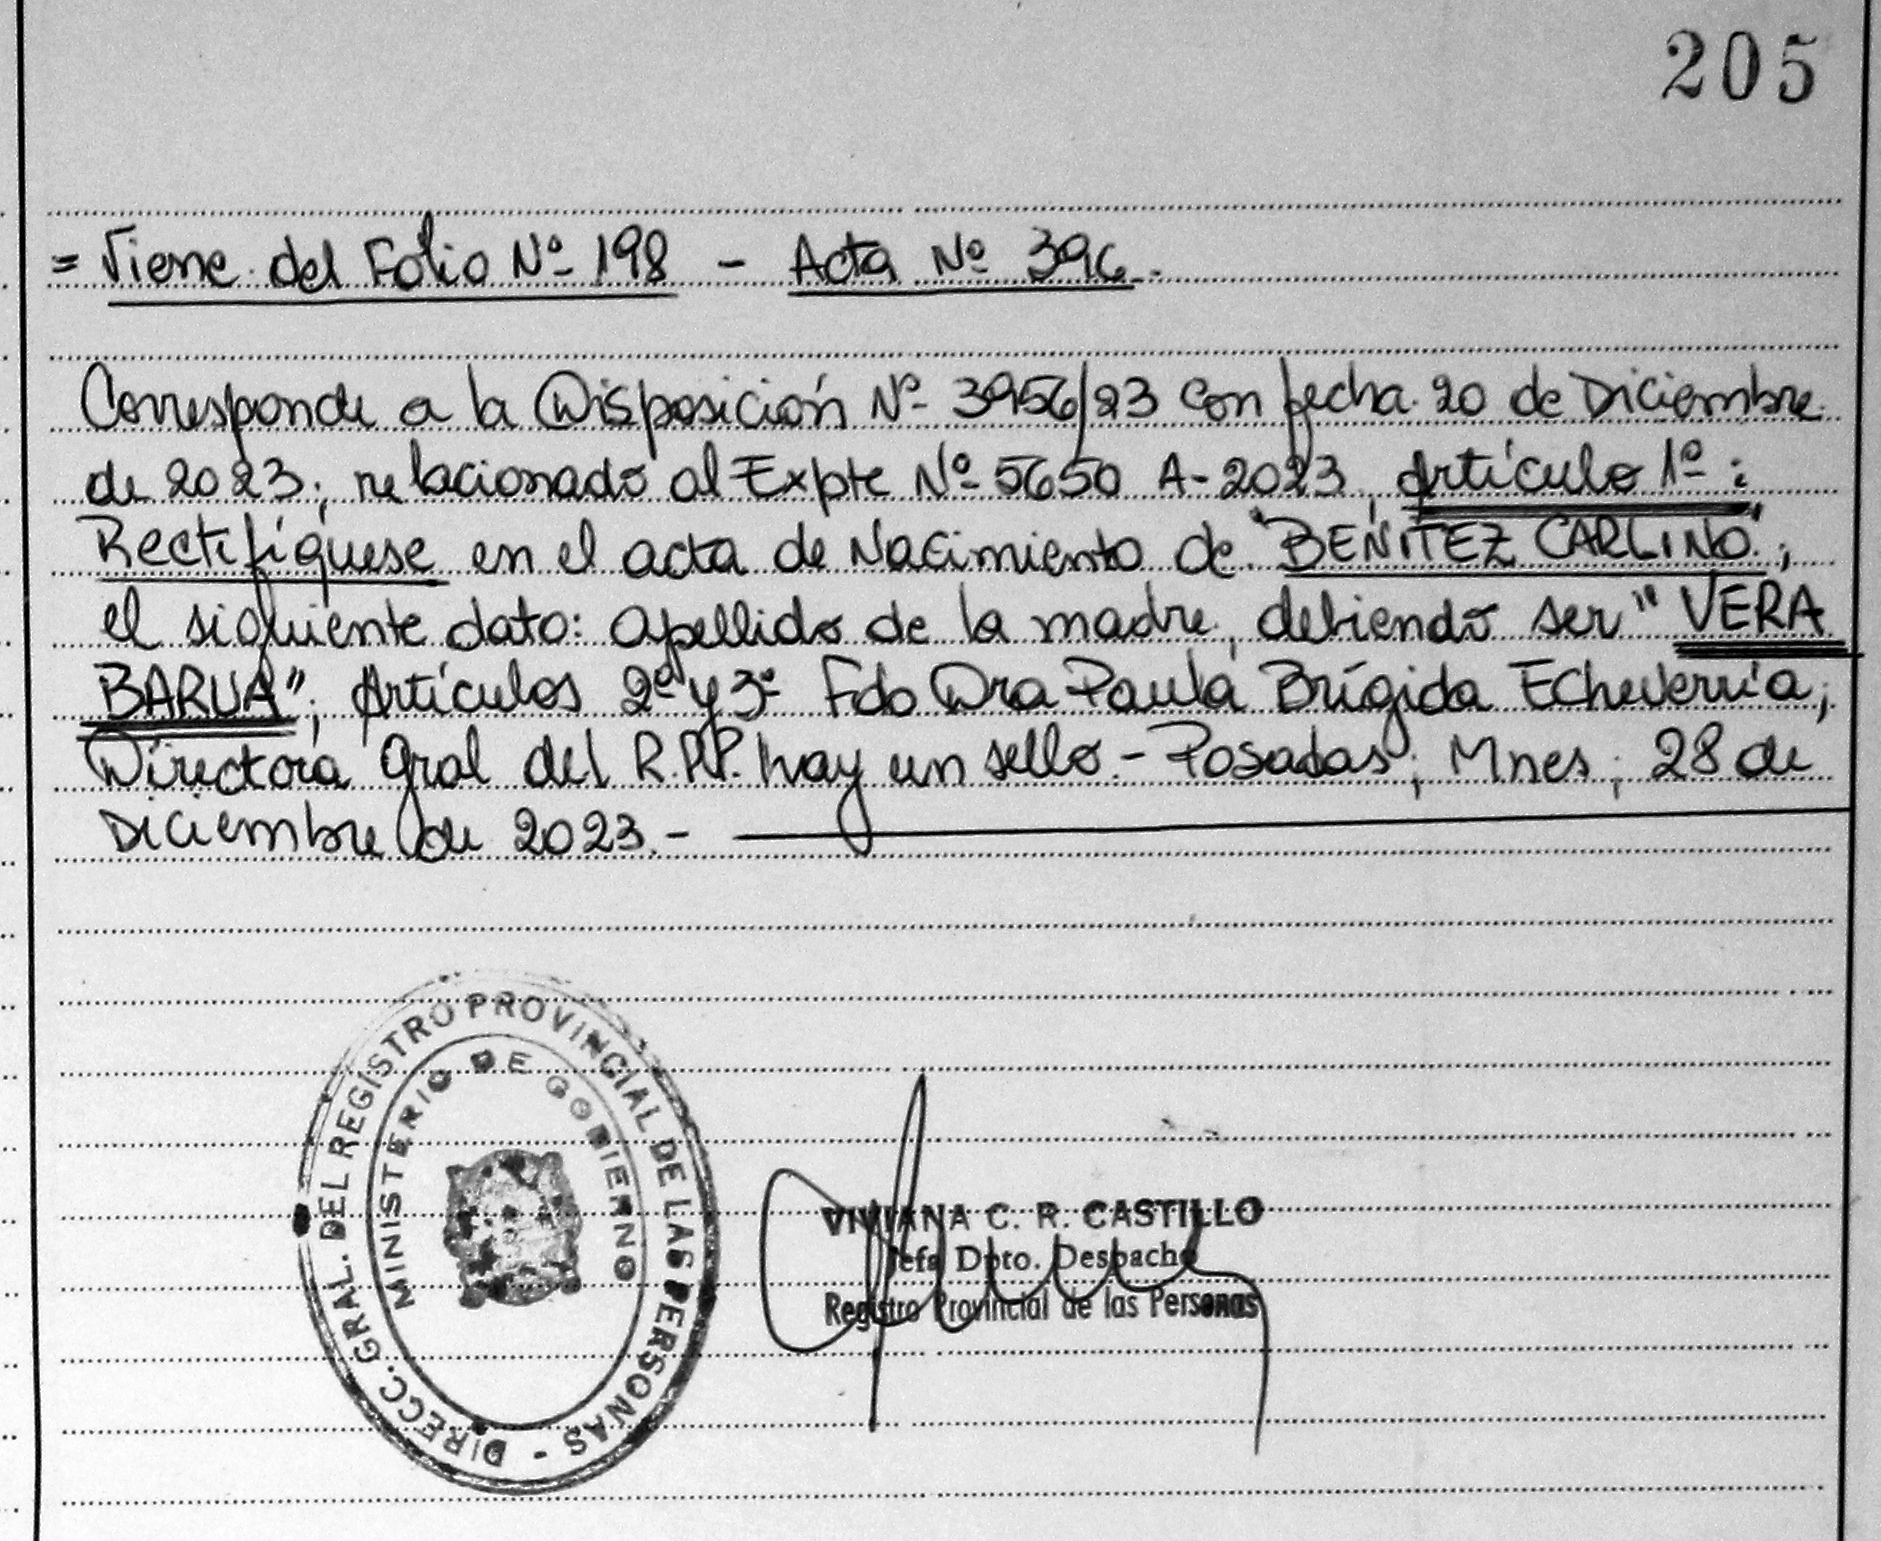 205
= Viene del Folio Nº 198 - Acta Nº 396.-
Corresponde a la Disposición Nº 3956/23 con fecha 20 de Diciembre
de 2023; relacionado al Expte Nº 5650 A-2023, Artículo 1º:
Rectifíquese en el acta de Nacimiento de "BENITEZ CARLINO";
el siguiente dato: apellido de la madre, debiendo ser "VERA
BARUA"; Artículos 2º y 3º Fdo Dra Paula Brígida Echeverría;
Directora Gral del R.P.P. hay un sello.- Posadas; Mnes; 28 de
Diciembre de 2023.-
DIRECC. GRAL. DEL REGISTRO PROVINCIAL DE LAS PERSONAS -
MINISTERIO DE GOBIERNO
VIVIANA C. R. CASTILLO
Jefa Dpto. Despacho
Registro Provincial de las Personas